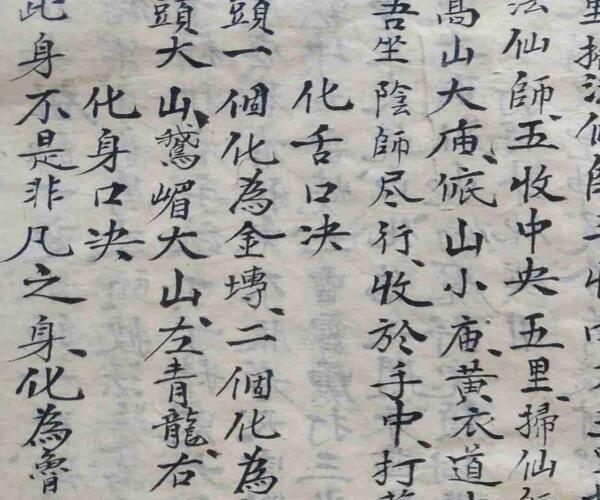 里掃法仙師三收
法仙師、五收中央五里、掃仙
高山大庙、底山小庙、黄衣道
吾坐陰師尽行、收於手中、打
化舌口决
頭一個化為金塼、二個化為
頭大山、鵞嵋大山、左青龍、右
化身口决
此身不是非凡之身、化為魯